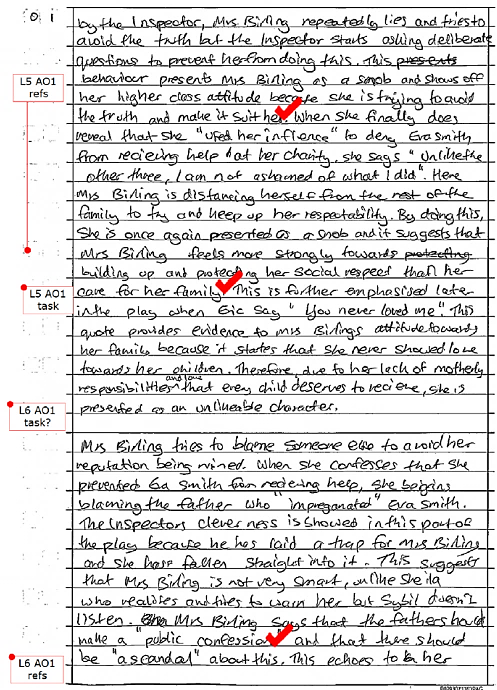 0 1
by the Inspector, Mrs Birling repeatedly lies and tries to
avoid the truth but the Inspector starts asking deliberate
questions to prevent her from doing this. This presents
L5 AO1
refs
behaviour presents Mrs Birling as a snob and shows off
her higher class attitude because she is trying to avoid
the truth and make it suit her. When she finally does
reveal that she "used her influence" to deny Eva Smith
from recieving help at her charity. She says "Unlike the
other three, I am not ashamed of what I did". Here
Mrs Birling is distancing herself from the rest of the
family to try and keep up her respectability. By doing this,
She is once again presented as a snob and it suggests that
Mrs Birling feels more strongly towards protecting
building up and protecting her social respect than her
L5 AO1
task
care for her family. This is further emphasised later
in the play when Eric say "You never loved me". This
quote provides evidence to Mrs Birlings attitude towards
her family because it states that she never showed love
towards her children. Therefore, due to her lack of motherly
responsibilities and love that every child deserves to recieve, she is
L6 AO1
task?
presented as an unlikeable character.
Mrs Birling tries to blame someone else to avoid her
reputation being ruined. When she confesses that she
prevented Eva Smith from recieving help, she begins
blaming the father who "impregnated" Eva Smith.
The Inspectors clever ness is showed in this part of
the play because he has laid a trap for Mrs Birling
and she has fallen straight into it. This suggests
that Mrs Birling is not very smart, unlike Sheila
who realises and tries to warn her but Sybil doesn't
listen. Mrs Birling says that the father should
make a "public confession" and that there should
L6 AO1
refs
be "a scandal" about this. This echoes to her